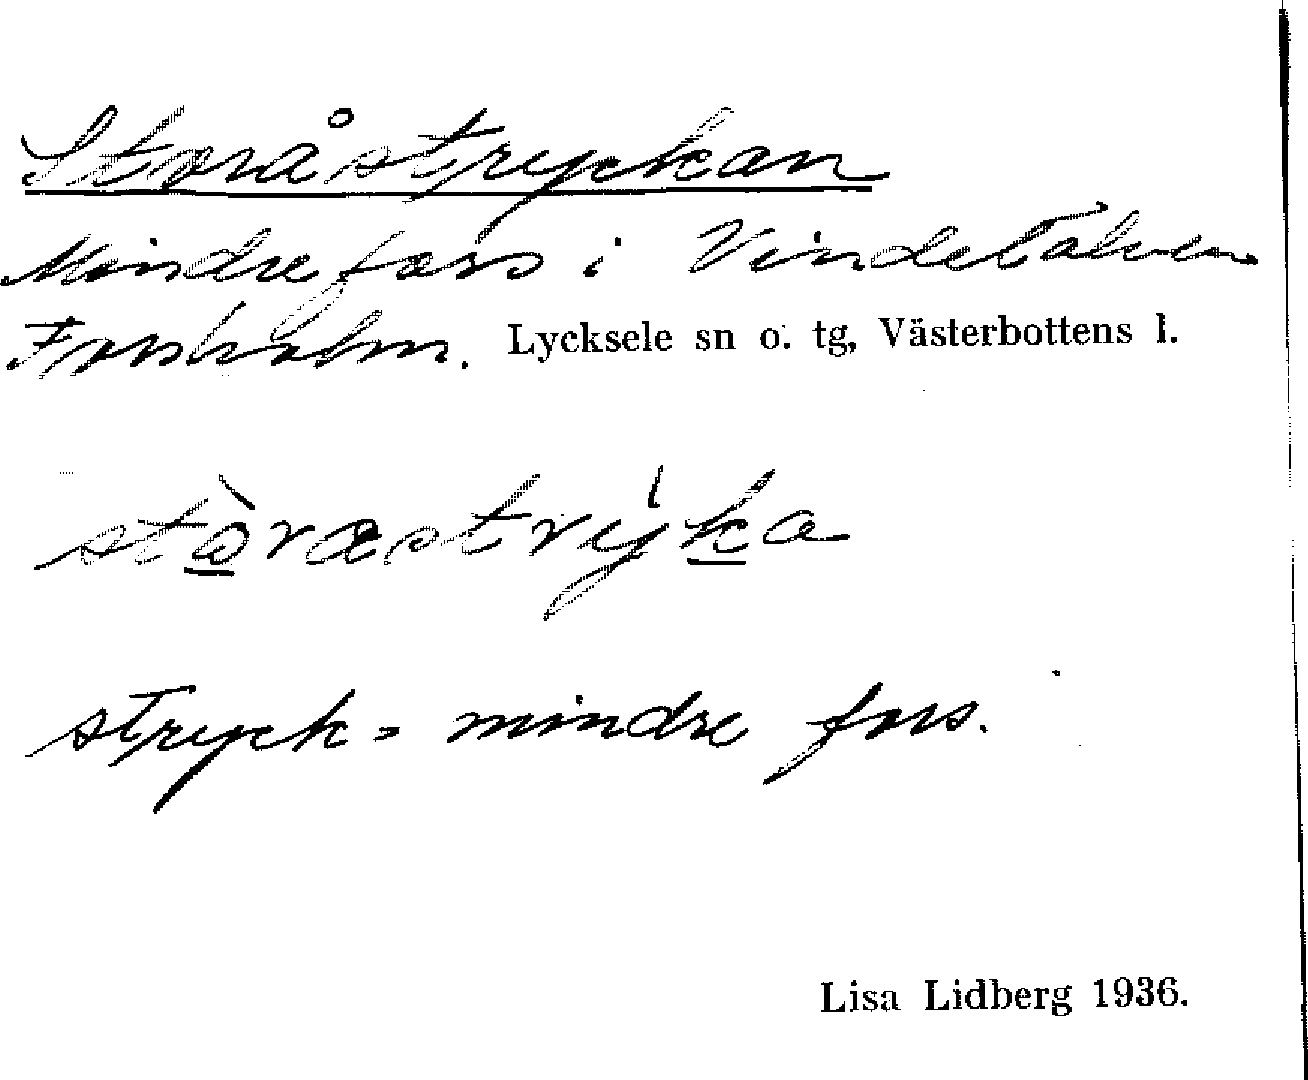 Storåstryckan
Mindre fors i Vindelälven
Forsholm. Lycksele sn o. tg, Västerbottens l.
stòræstrýka
stryck = mindre fors.
Lisa Lidberg 1936.